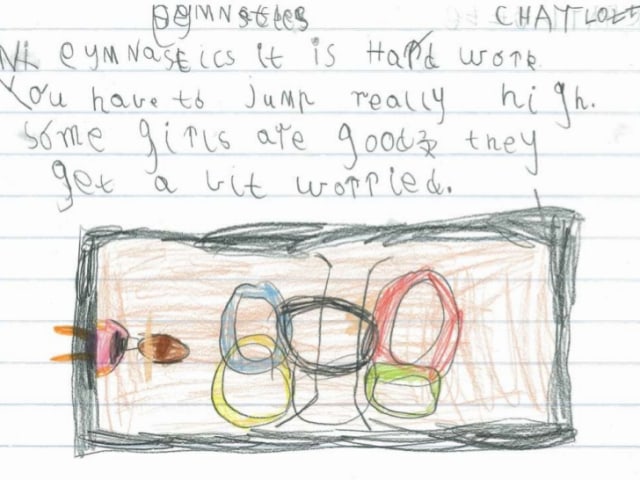 GYMNastics CHATLOtt
Ni GYMNastics it is HaRd WorK
You have to jump really high.
some girls are good & they
get a bit worried.